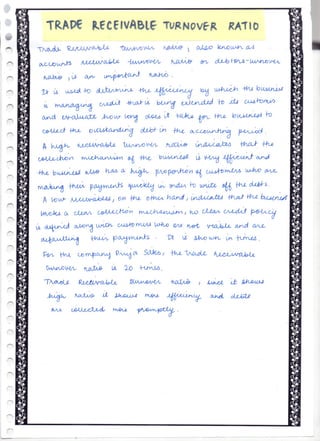 TRADE RECEIVABLE TURNOVER RATIO
Trade Receivable turnover ratio, also known as
accounts receivable turnover ratio or debtors-turnover
ratio, is an important ratio.
It is used to determine the efficiency by which the business
is managing credit that is being extended to its customers
and evaluate how long does it take for the business to
collect the outstanding debt in the accounting period.
A high receivable turnover ratio indicates that the
collection mechanism of the business is very efficient and
the business also has a high proportion of customers who are
making their payments quickly in order to write off the debts.
A low receivables, on the other hand, indicates that the business
lacks a clear collection mechanism, no clear credit policy
is defined along with customers who are not viable and are
defaulting their payments. It is shown in times.
For the company Priya Silks, the trade receivable
turnover ratio is 20 times.
Trade Receivable Turnover ratio, since it shows
high ratio it shows more efficiency and debts
are collected more promptly.